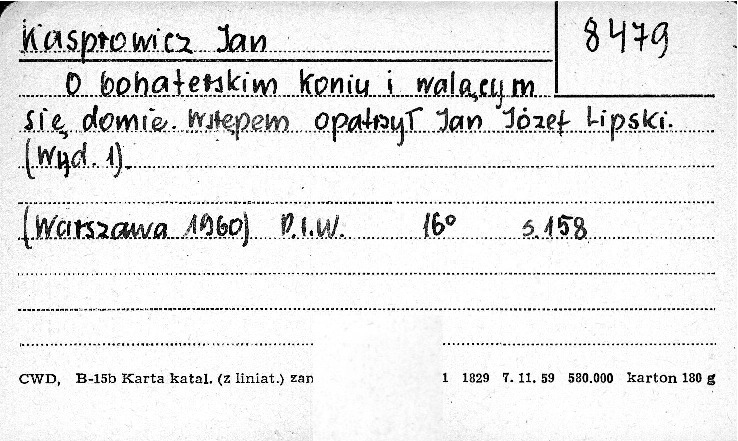 Kasprowicz Jan
8479
O bohaterskim koniu i walącym
się domie. Wstępem opatrzył Jan Józef Lipski.
(Wyd. 1).
(Warszawa 1960) P.I.W. 16° s. 158
CWD, B-15b Karta katal. (z liniat.) zam 1 1829 7. 11. 59 580.000 karton 180 g